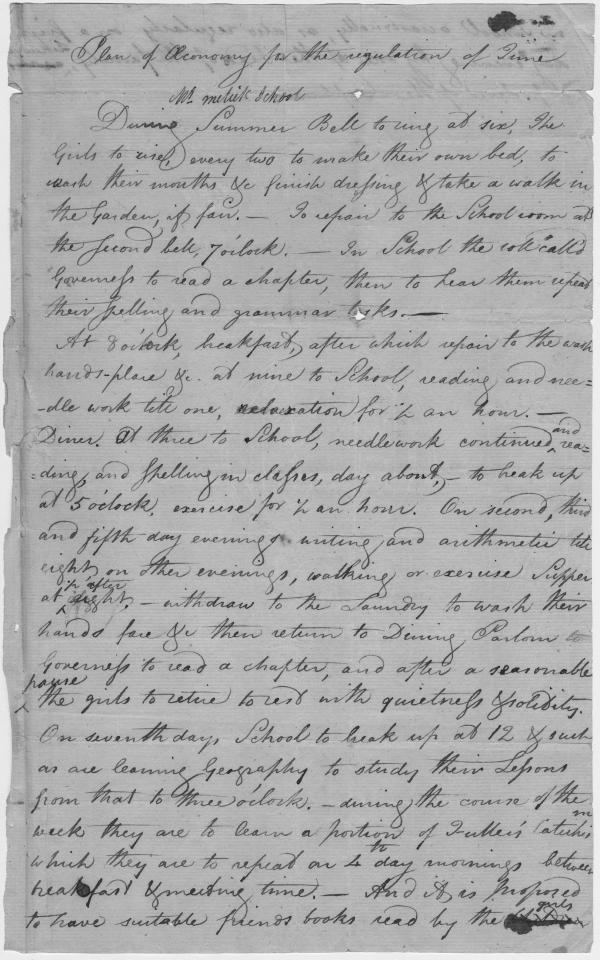 Plan of Œconomy for the regulation of Time
Mt melick School
During Summer Bell to ring at six, The
Girls to rise, every two to make their own bed, to
wash their mouths &c finish dressing & take a walk in
the Garden, if fair. — To repair to the School room at
the second bell, 7 o'clock. — In School the roll call'd
Governess to read a chapter, then to hear them repeat
their spelling and grammar tasks. —
At 8 o'clock, breakfast, after which repair to the wash
hands-place &c. at nine to School, reading and nee=
-dle work till one, relaxation for ½ an hour. —
Diner. At three to School, needlework continued, and rea=
=ding, and spelling in classes, day about, — to break up
at 5 o'clock, exercise for ½ an hour. On second, third
and fifth day evenings writing and arithmetic till
eight, on other evenings, walking or exercise Supper
at ½ after eight. — withdraw to the Laundry to wash their
hands face &c then return to Dining Parlour
Governess to read a chapter, and after a seasonable
pause
the girls to retire to rest with quietness & solidity.
On seventh days School to break up at 12 & such
as are learning Geography to study their Lessons
from that to three o'clock. — during the course of the
week they are to learn a portion of Fuller's Catechism
which they are to repeat on 4th day mornings between
breakfast & meeting time. — And it is proposed
to have suitable friends books read by the girls